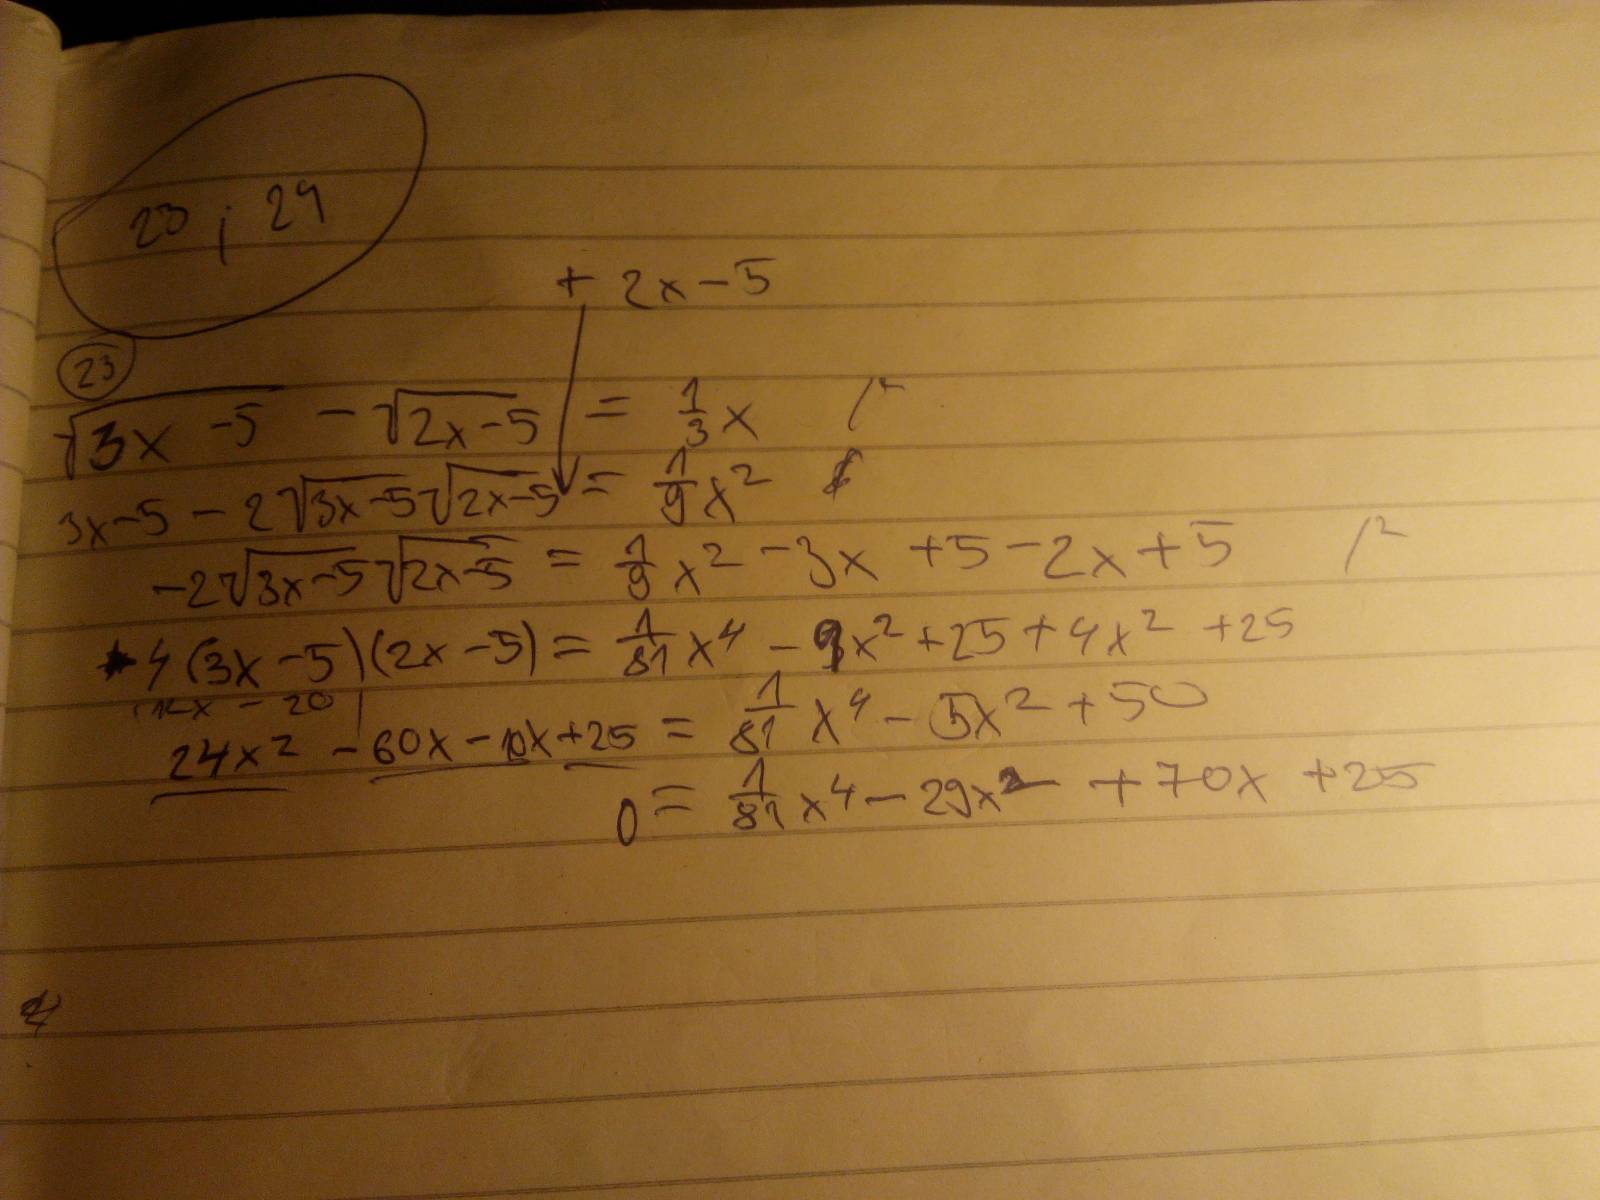 23 ; 24
+ 2x - 5
23
√(3x - 5) - √(2x - 5) = 1/3 x /²
3x - 5 - 2√(3x - 5)√(2x - 5) = 1/9 x²
-2√(3x - 5)√(2x - 5) = 1/9 x² - 3x + 5 - 2x + 5 /²
4 (3x - 5)(2x - 5) = 1/81 x⁴ - 9x² + 25 + 4x² + 25
12x - 20
24x² - 60x - 10x + 25 = 1/81 x⁴ - 5x² + 50
0 = 1/81 x⁴ - 29x² + 70x + 25